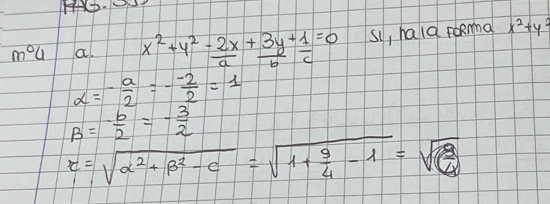 PAG.
m°4 a. x²+y²-2x+3y+1=0 SI, ha la forma x²+y²
a b c
α = -a/2 = - -2/2 = 1
β = -b/2 = -3/2
r = √α²+β²-c = √1+9/4-1 = √9/4